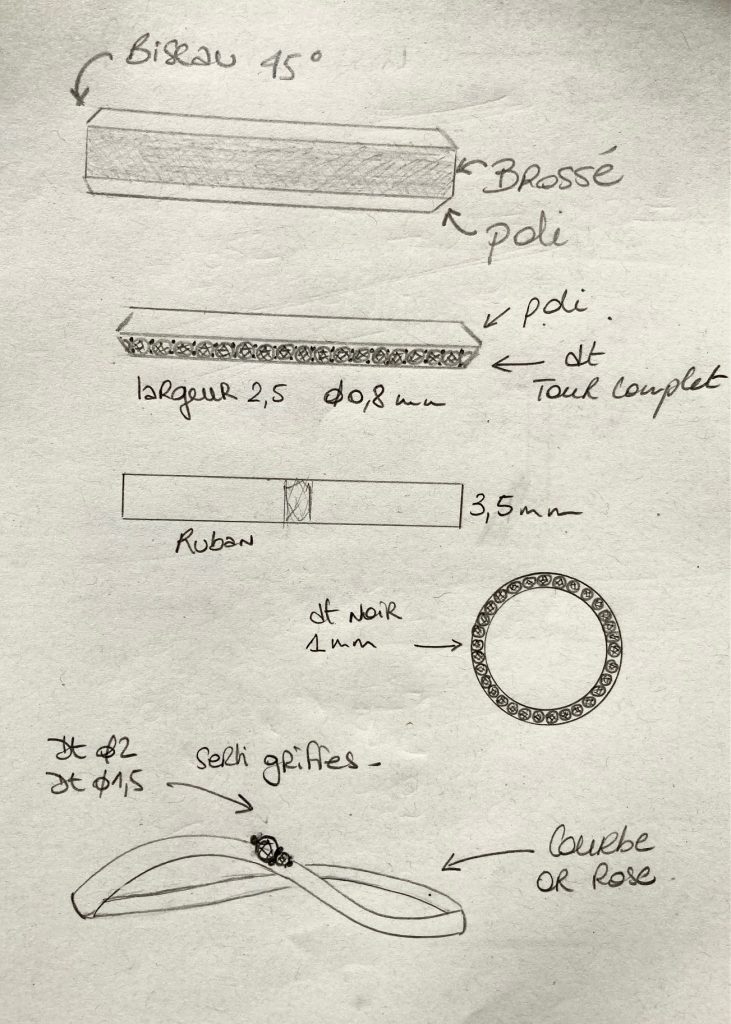 Biseau 45°
Brossé
poli
poli.
dt
Tour complet
largeur 2,5 ø0,8 mm
3,5 mm
Ruban
dt Noir
1 mm
dt ø2
dt ø1,5
Serti griffes -
Courbe
OR Rose